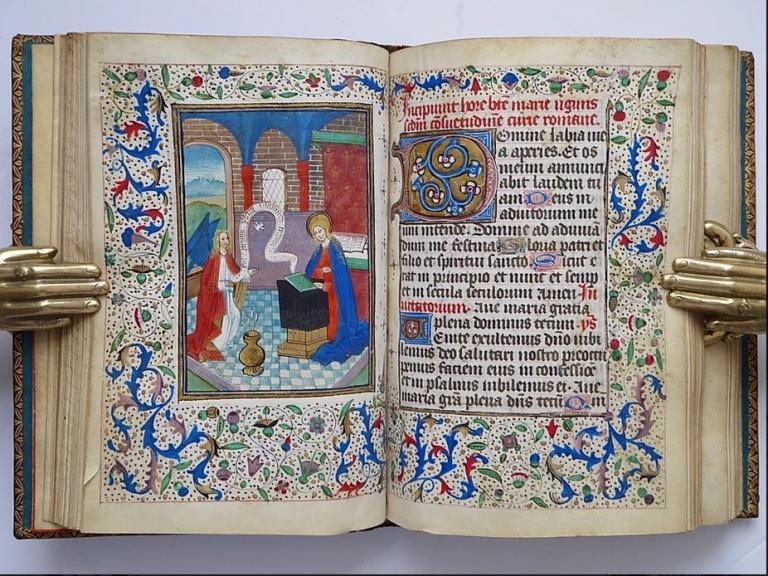 Incipiunt hore bte marie uginis
scdm cōsuetudinē curie romane.
Domine labia me
a aperies. Et os
meum annunci
abit laudem tu
am Deus in
adiutorium me
um intende. Domine ad adiuuā
dum me festina Gloria patri et
filio et spiritui sancto Sicut e
rat in principio et nunc et semp
et in secula seculorum amen In
uitatorium. Aue maria gratia
plena dominus tecum. ps
Uenite exultemus dno iubi
lemus deo salutari nostro preoccu
pemus faciem eius in confessiō
et in psalmis iubilemus ei. Aue
maria grā plena dns tecū Qm